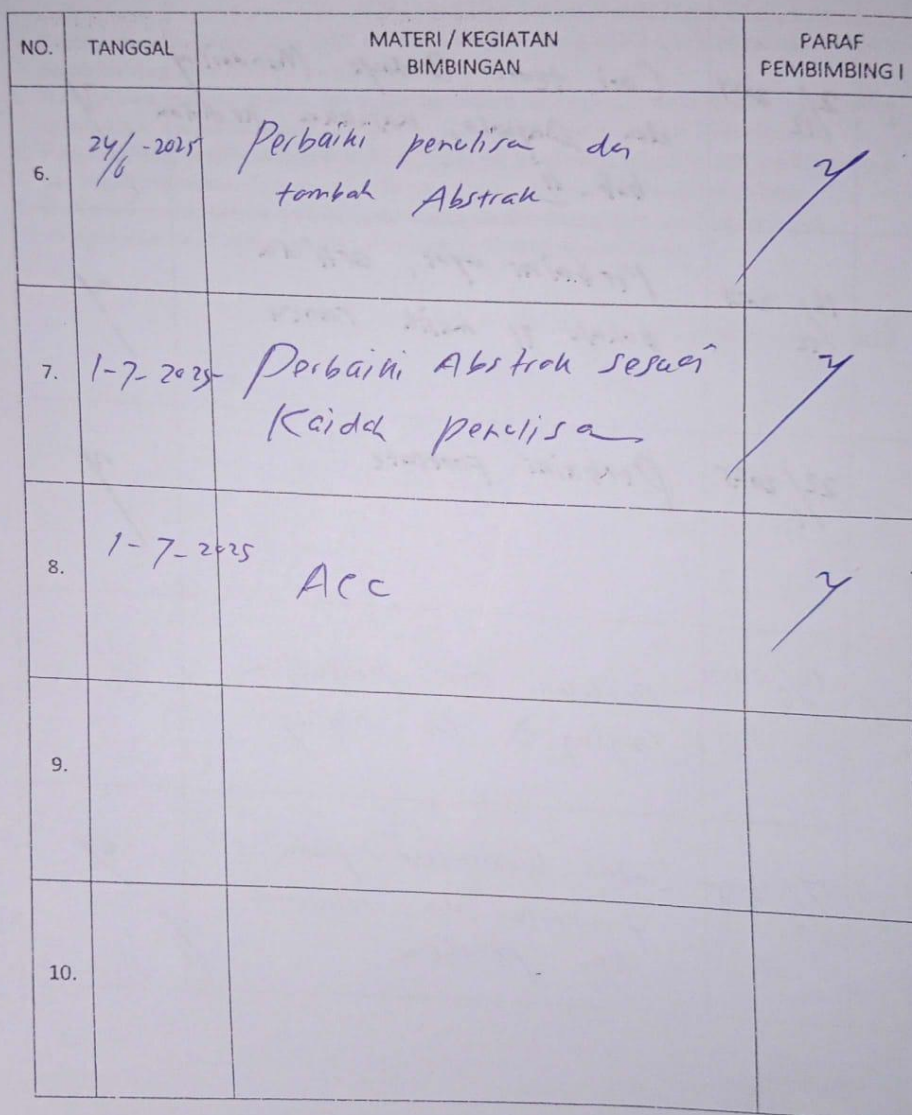 NO. TANGGAL MATERI / KEGIATAN PARAF
BIMBINGAN PEMBIMBING I
6. 24/6-2025 Perbaiki penulisan dan
tambah Abstrak
7. 1-7-2025 Perbaiki Abstrak sesuai
Kaidah penulisan
8. 1-7-2025 Acc
9.
10.